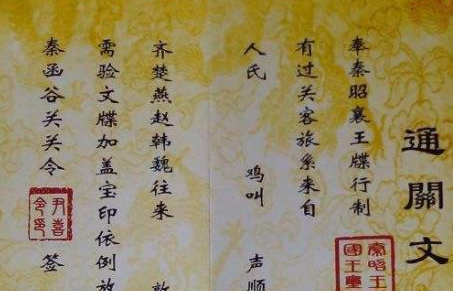 通關文
奉秦昭襄王牒行制
有过关客旅系来自
人氏 鸡叫 声顺
齐楚燕赵韩魏往来
需验文牒加盖宝印依例放
秦函谷关关令 签
尹喜
秦昭王
國王